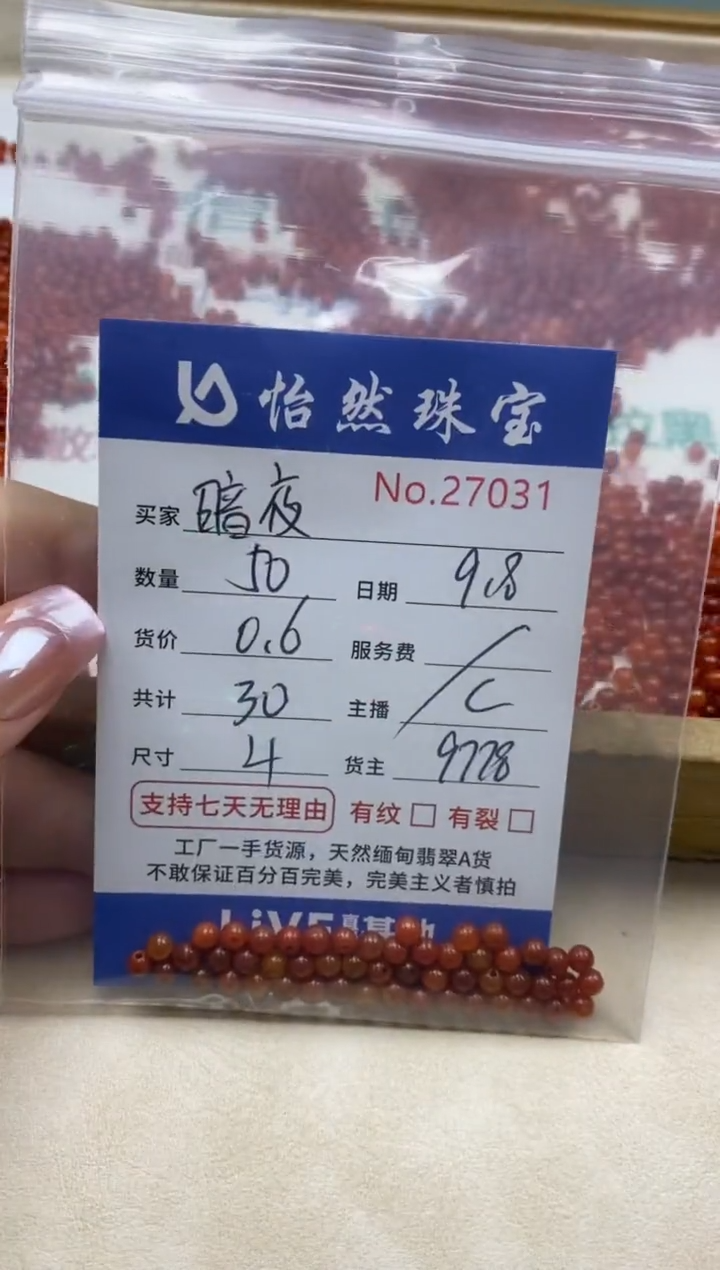 怡然珠宝
No.27031
买家 暗夜
数量 50 日期 9.8
货价 0.6 服务费 /
共计 30 主播 C
尺寸 4 货主 9778
支持七天无理由 有纹 □ 有裂 □
工厂一手货源，天然缅甸翡翠A货
不敢保证百分百完美，完美主义者慎拍
LiVE